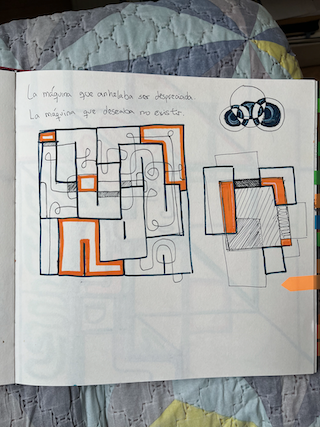 La máquina que anhelaba ser despreciada
La máquina que deseaba no existir.